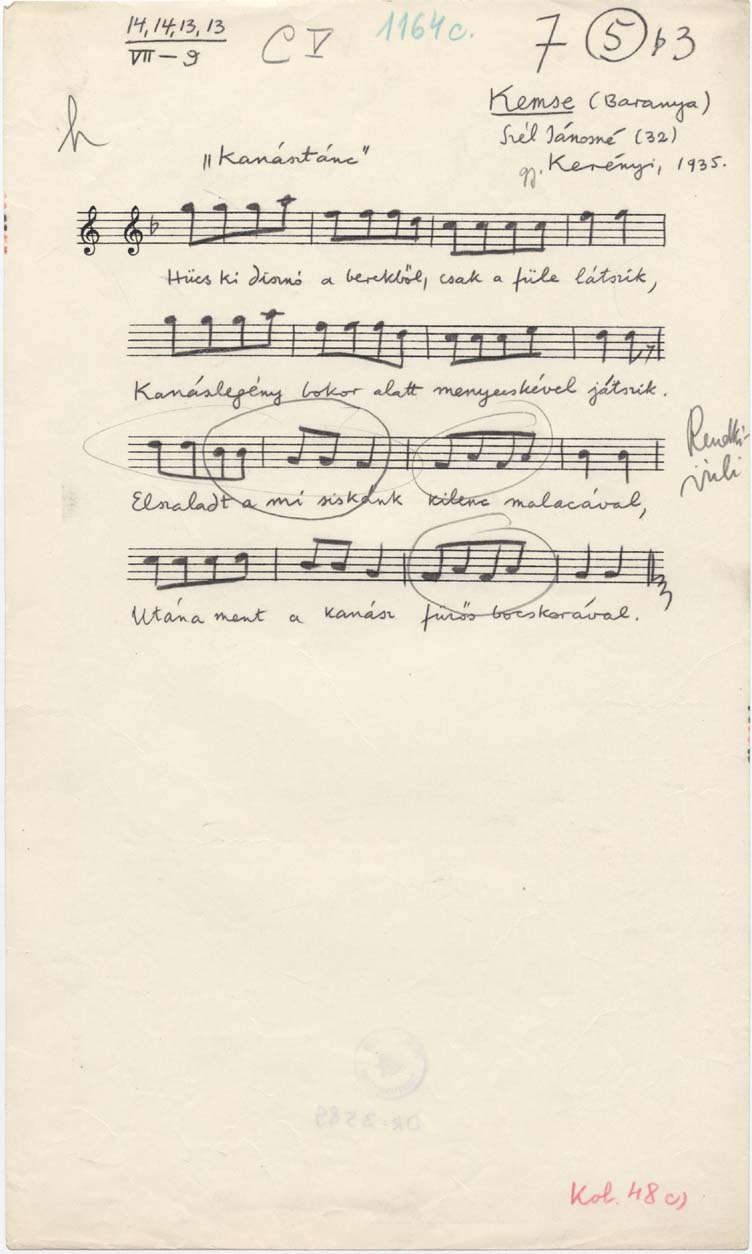 14, 14, 13, 13
VII – 9
C V
1164c.
7 5 b3
Kemse (Baranya)
Szél Jánosné (32)
gy. Kerényi, 1935.
h
„Kanásztánc"
Hücs ki disznó a berekből, csak a füle látszik,
Kanászlegény bokor alatt menyecskével játszik.
Elszaladt a mi siskánk kilenc malacával,
Rendkí-
vüli
Utána ment a kanász fűzős bocskorával.
DR-3589
Kob. 48 c)